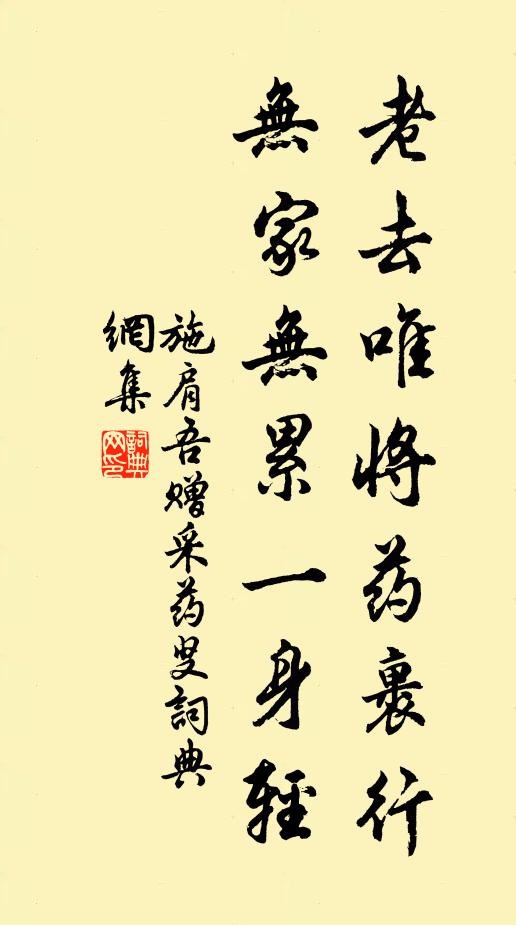 老去唯將药裹行
無家無累一身輕
施肩吾赠采药叟詞典
網集
詞典
网印